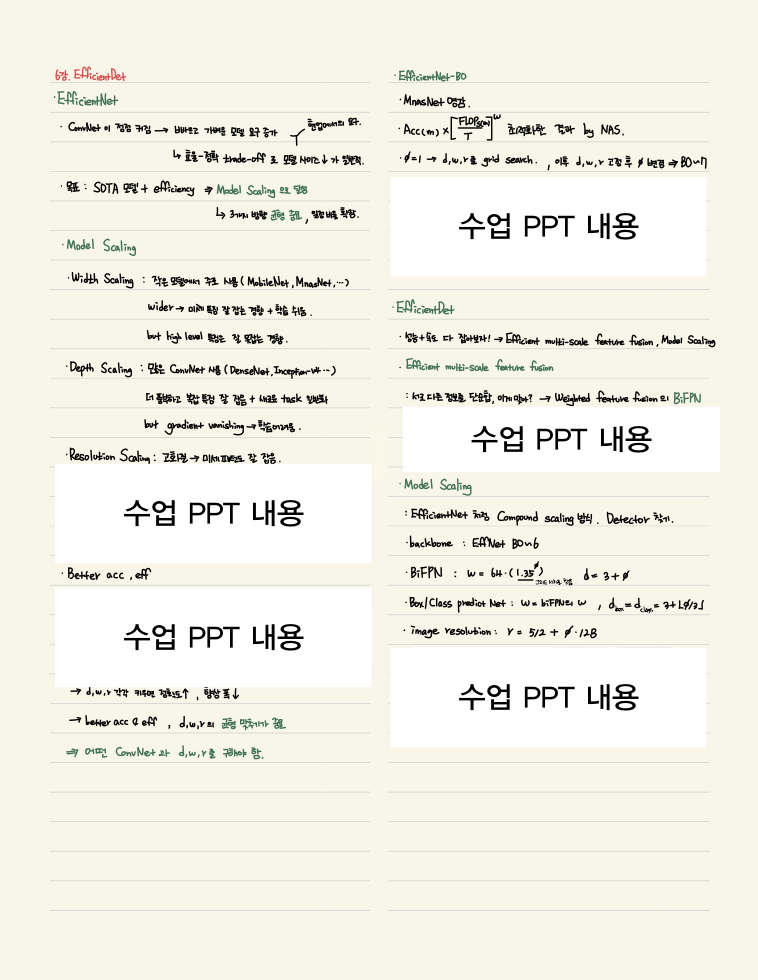 6강. EfficientDet
·EfficientNet
· ConvNet 이 점점 커짐 → 빠르고 가벼운 모델 요구 증가
현업에서의 요구.
↳ 효율-정확 trade-off 로 모델 사이즈↓ 가 일반적.
· 목표 : SOTA 모델 + efficiency ⇒ Model Scaling 으로 달성
↳ 3가지 방향 균형 중요, 일정비율 확장.
·Model Scaling
·Width Scaling : 작은 모델에서 주로 사용 (MobileNet, MnasNet, ...)
wider → 미세 특징 잘 잡는 경향 + 학습 쉬움.
but high level 특징은 잘 못잡는 경향.
·Depth Scaling : 많은 ConvNet 사용 (DenseNet, Inception-v4 ...)
더 풍부하고 복잡 특징 잘 잡음 + 새로운 task 일반화
but gradient vanishing → 학습어려움.
·Resolution Scaling : 고화질 → 미세 패턴도 잘 잡음.
수업 PPT 내용
· Better acc, eff
수업 PPT 내용
→ d,w,r 각각 키우면 정확도↑, 향상 폭↓
→ better acc & eff , d,w,r 의 균형 맞추기가 중요
⇒ 어떤 ConvNet 과 d,w,r를 구해야 함.
· EfficientNet-B0
·MnasNet 영감.
·Acc(m) × [FLOPS(m)/T]^w 최적화한 결과 by NAS.
·φ=1 → d,w,r를 grid search. , 이후 d,w,r 고정 후 φ 변경 ⇒ B0~7
수업 PPT 내용
·EfficientDet
· 성능+속도 다 잡아보자! → Efficient multi-scale feature fusion, Model Scaling
· Efficient multi-scale feature fusion
: 서로 다른 정보를 단순합, 이게 맞아? → Weighted feature fusion 의 BiFPN
수업 PPT 내용
·Model Scaling
: EfficientNet 처럼 Compound scaling 방식. Detector 찾기.
·backbone : EffNet B0~6
·BiFPN : w = 64·(1.35^φ) d = 3+φ
·Box/Class predict Net : w = biFPN의 w , d_box = d_class = 3+⌊φ/3⌋
· image resolution : r = 512 + φ·128
수업 PPT 내용